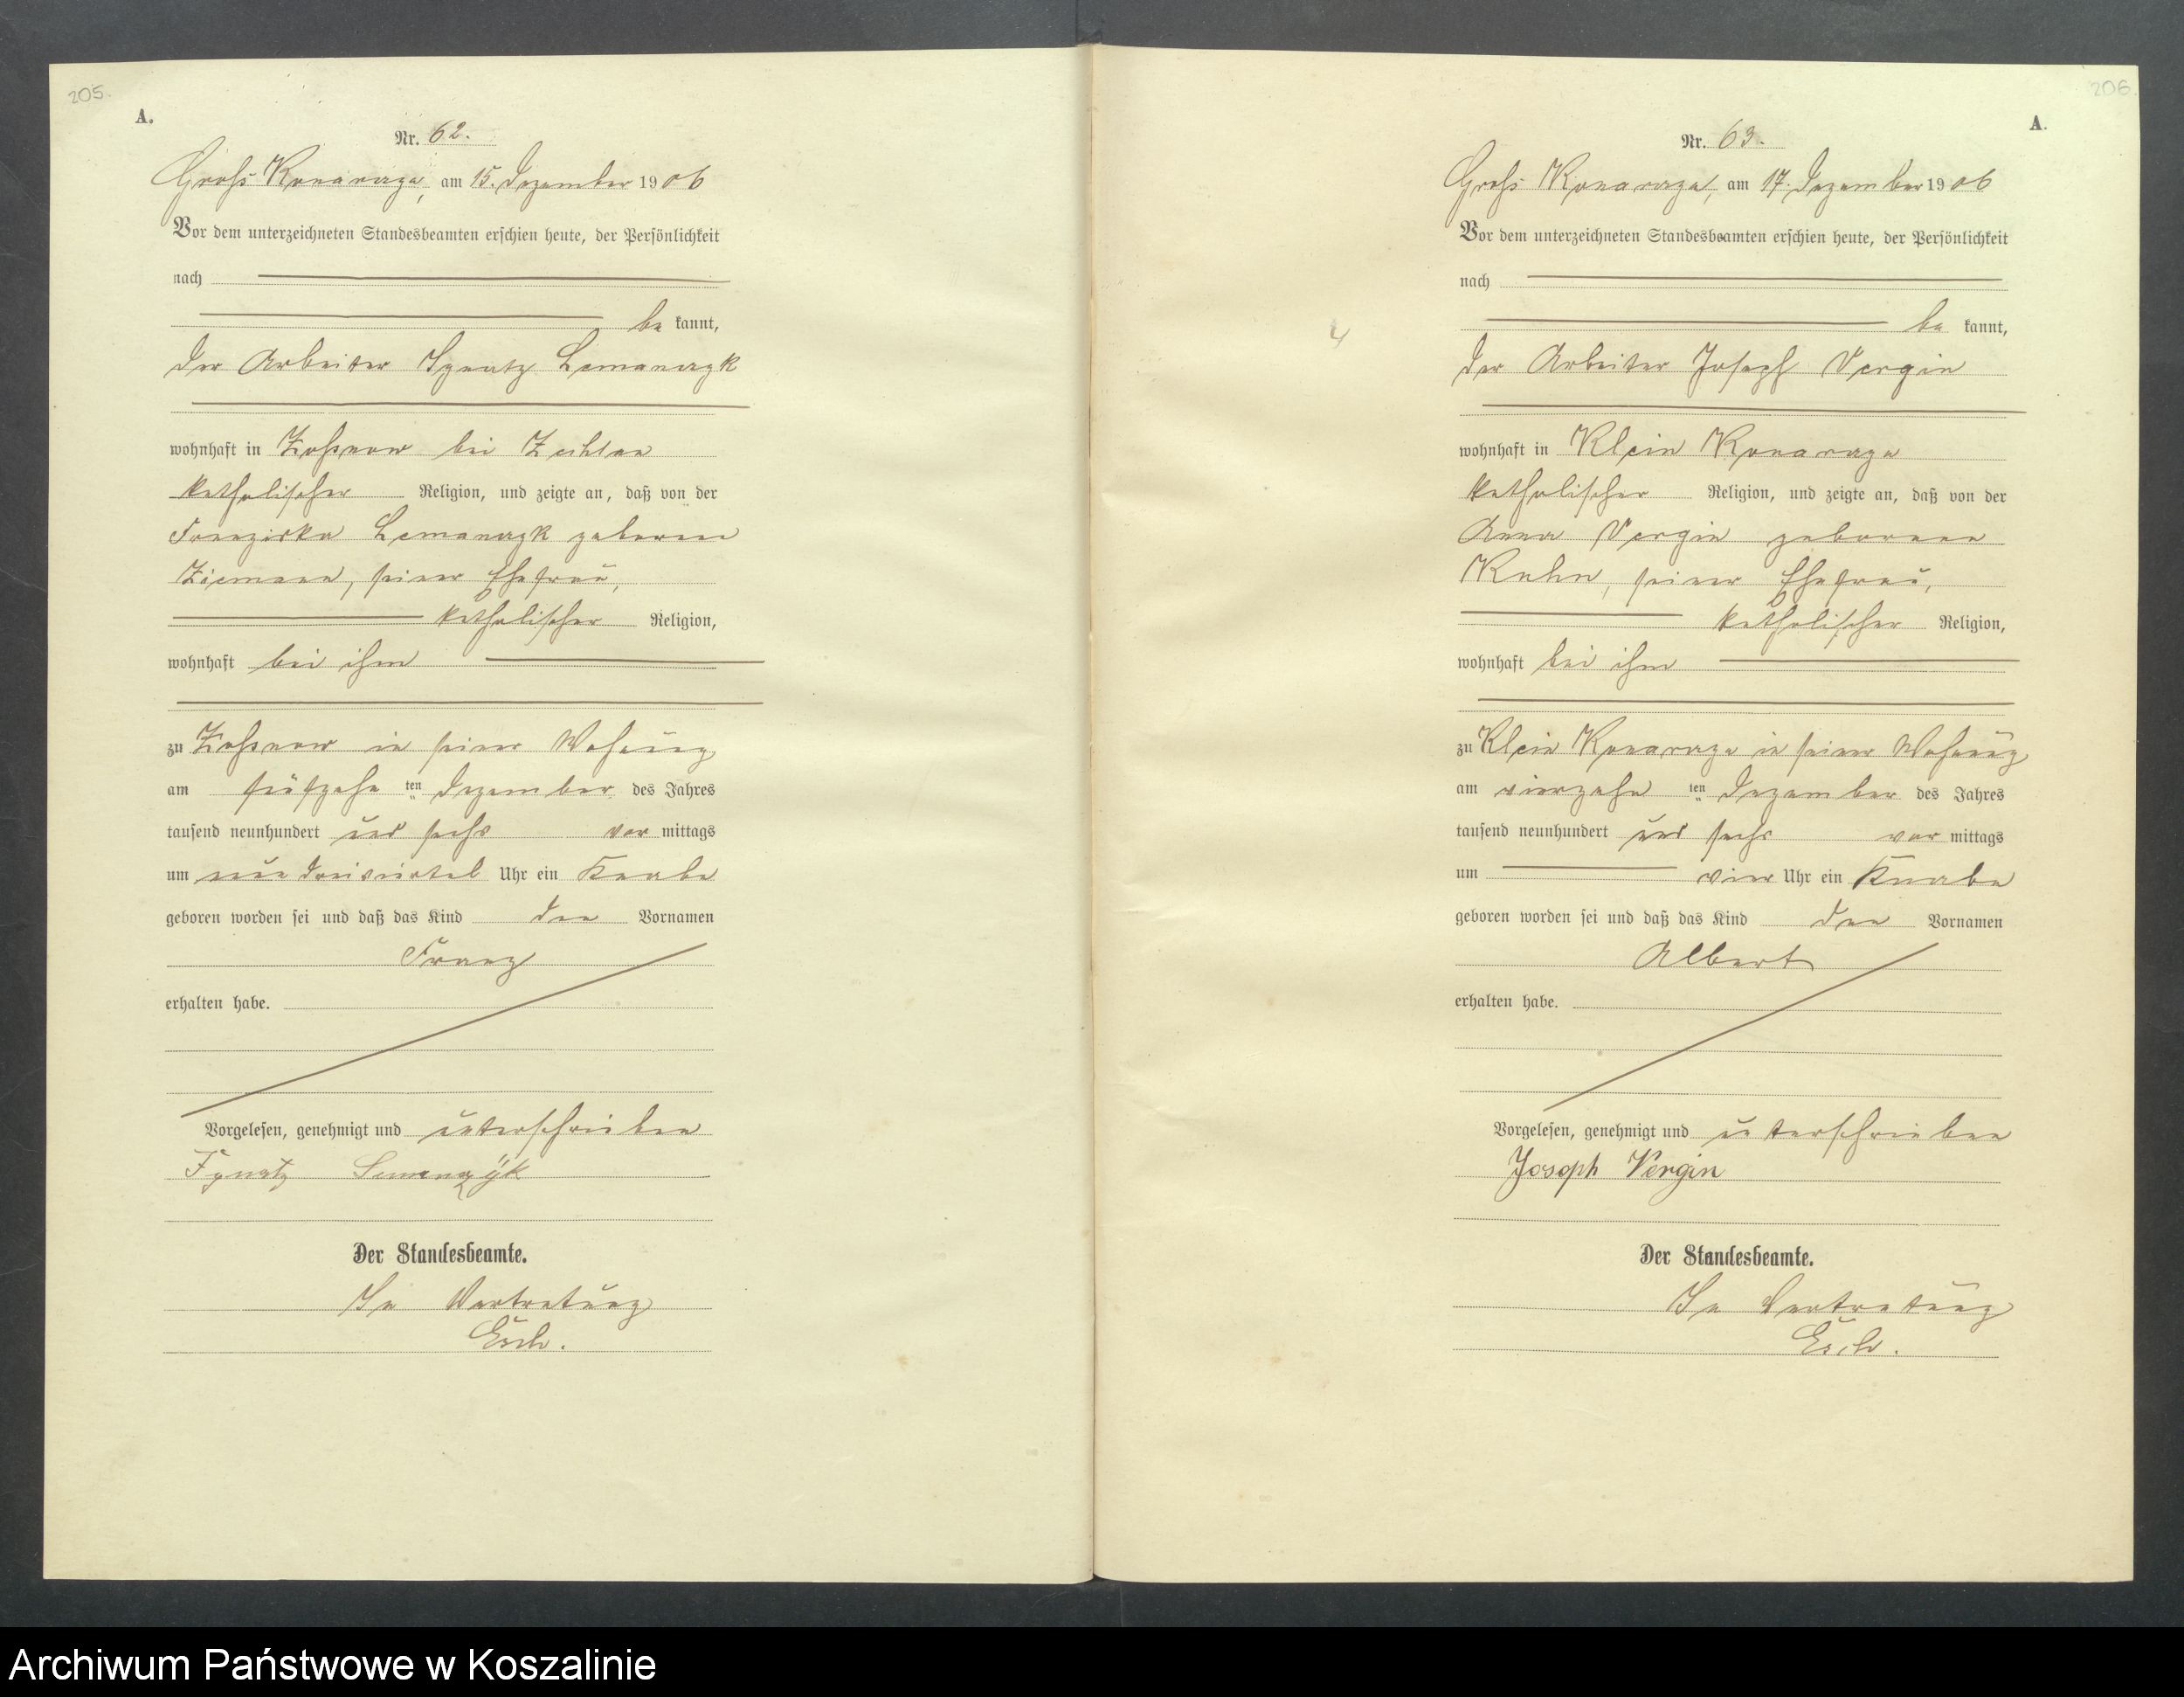 205.
A.
Nr. 62.
Groß Konarczyn, am 15. Dezember 1906
Vor dem unterzeichneten Standesbeamten erschien heute, der Persönlichkeit
nach
be kannt,
der Arbeiter Ignatz Lemanczyk
wohnhaft in bei
katholischer Religion, und zeigte an, daß von der
Franziska Lemanczyk geborene
Ziemann, seiner Ehefrau,
katholischer Religion,
wohnhaft bei ihm
zu in seiner Wohnung
am ten Dezember des Jahres
tausend neunhundert und sechs vor mittags
um neun dreiviertel Uhr ein Knabe
geboren worden sei und daß das Kind den Vornamen
Franz
erhalten habe.
Vorgelesen, genehmigt und unterschrieben
Ignatz
Der Standesbeamte.
In Vertretung
Esch.
206.
A.
Nr. 63.
Groß Konarczyn, am 17. Dezember 1906
Vor dem unterzeichneten Standesbeamten erschien heute, der Persönlichkeit
nach
be kannt,
der Arbeiter Joseph Vergin
wohnhaft in Klein Konarczyn
katholischer Religion, und zeigte an, daß von der
Anna Vergin geborenen
seiner Ehefrau,
katholischer Religion,
wohnhaft bei ihm
zu Klein Konarczyn in seiner Wohnung
am vierzehn ten Dezember des Jahres
tausend neunhundert und sechs vor mittags
um vier Uhr ein Knabe
geboren worden sei und daß das Kind den Vornamen
Albert
erhalten habe.
Vorgelesen, genehmigt und unterschrieben
Joseph Vergin
Der Standesbeamte.
In Vertretung
Esch.
Archiwum Państwowe w Koszalinie